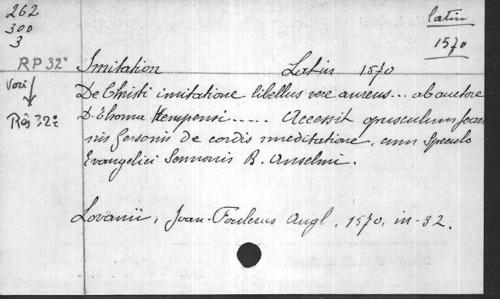 262
300
3
latin
1570
RP 32°
Imitation Latin 1570
Voir
De Christi imitatione libellus vere aureus... ab auctore
Rés 32°
D. Thoma Kempensi..... Accessit opusculum Joan
nis Gersonis de cordis meditatione, cum Speculo
Evangelici Sermonis B. Anselmi.
Lovanii, Joan. Foulerus Angl, 1570, in-32.